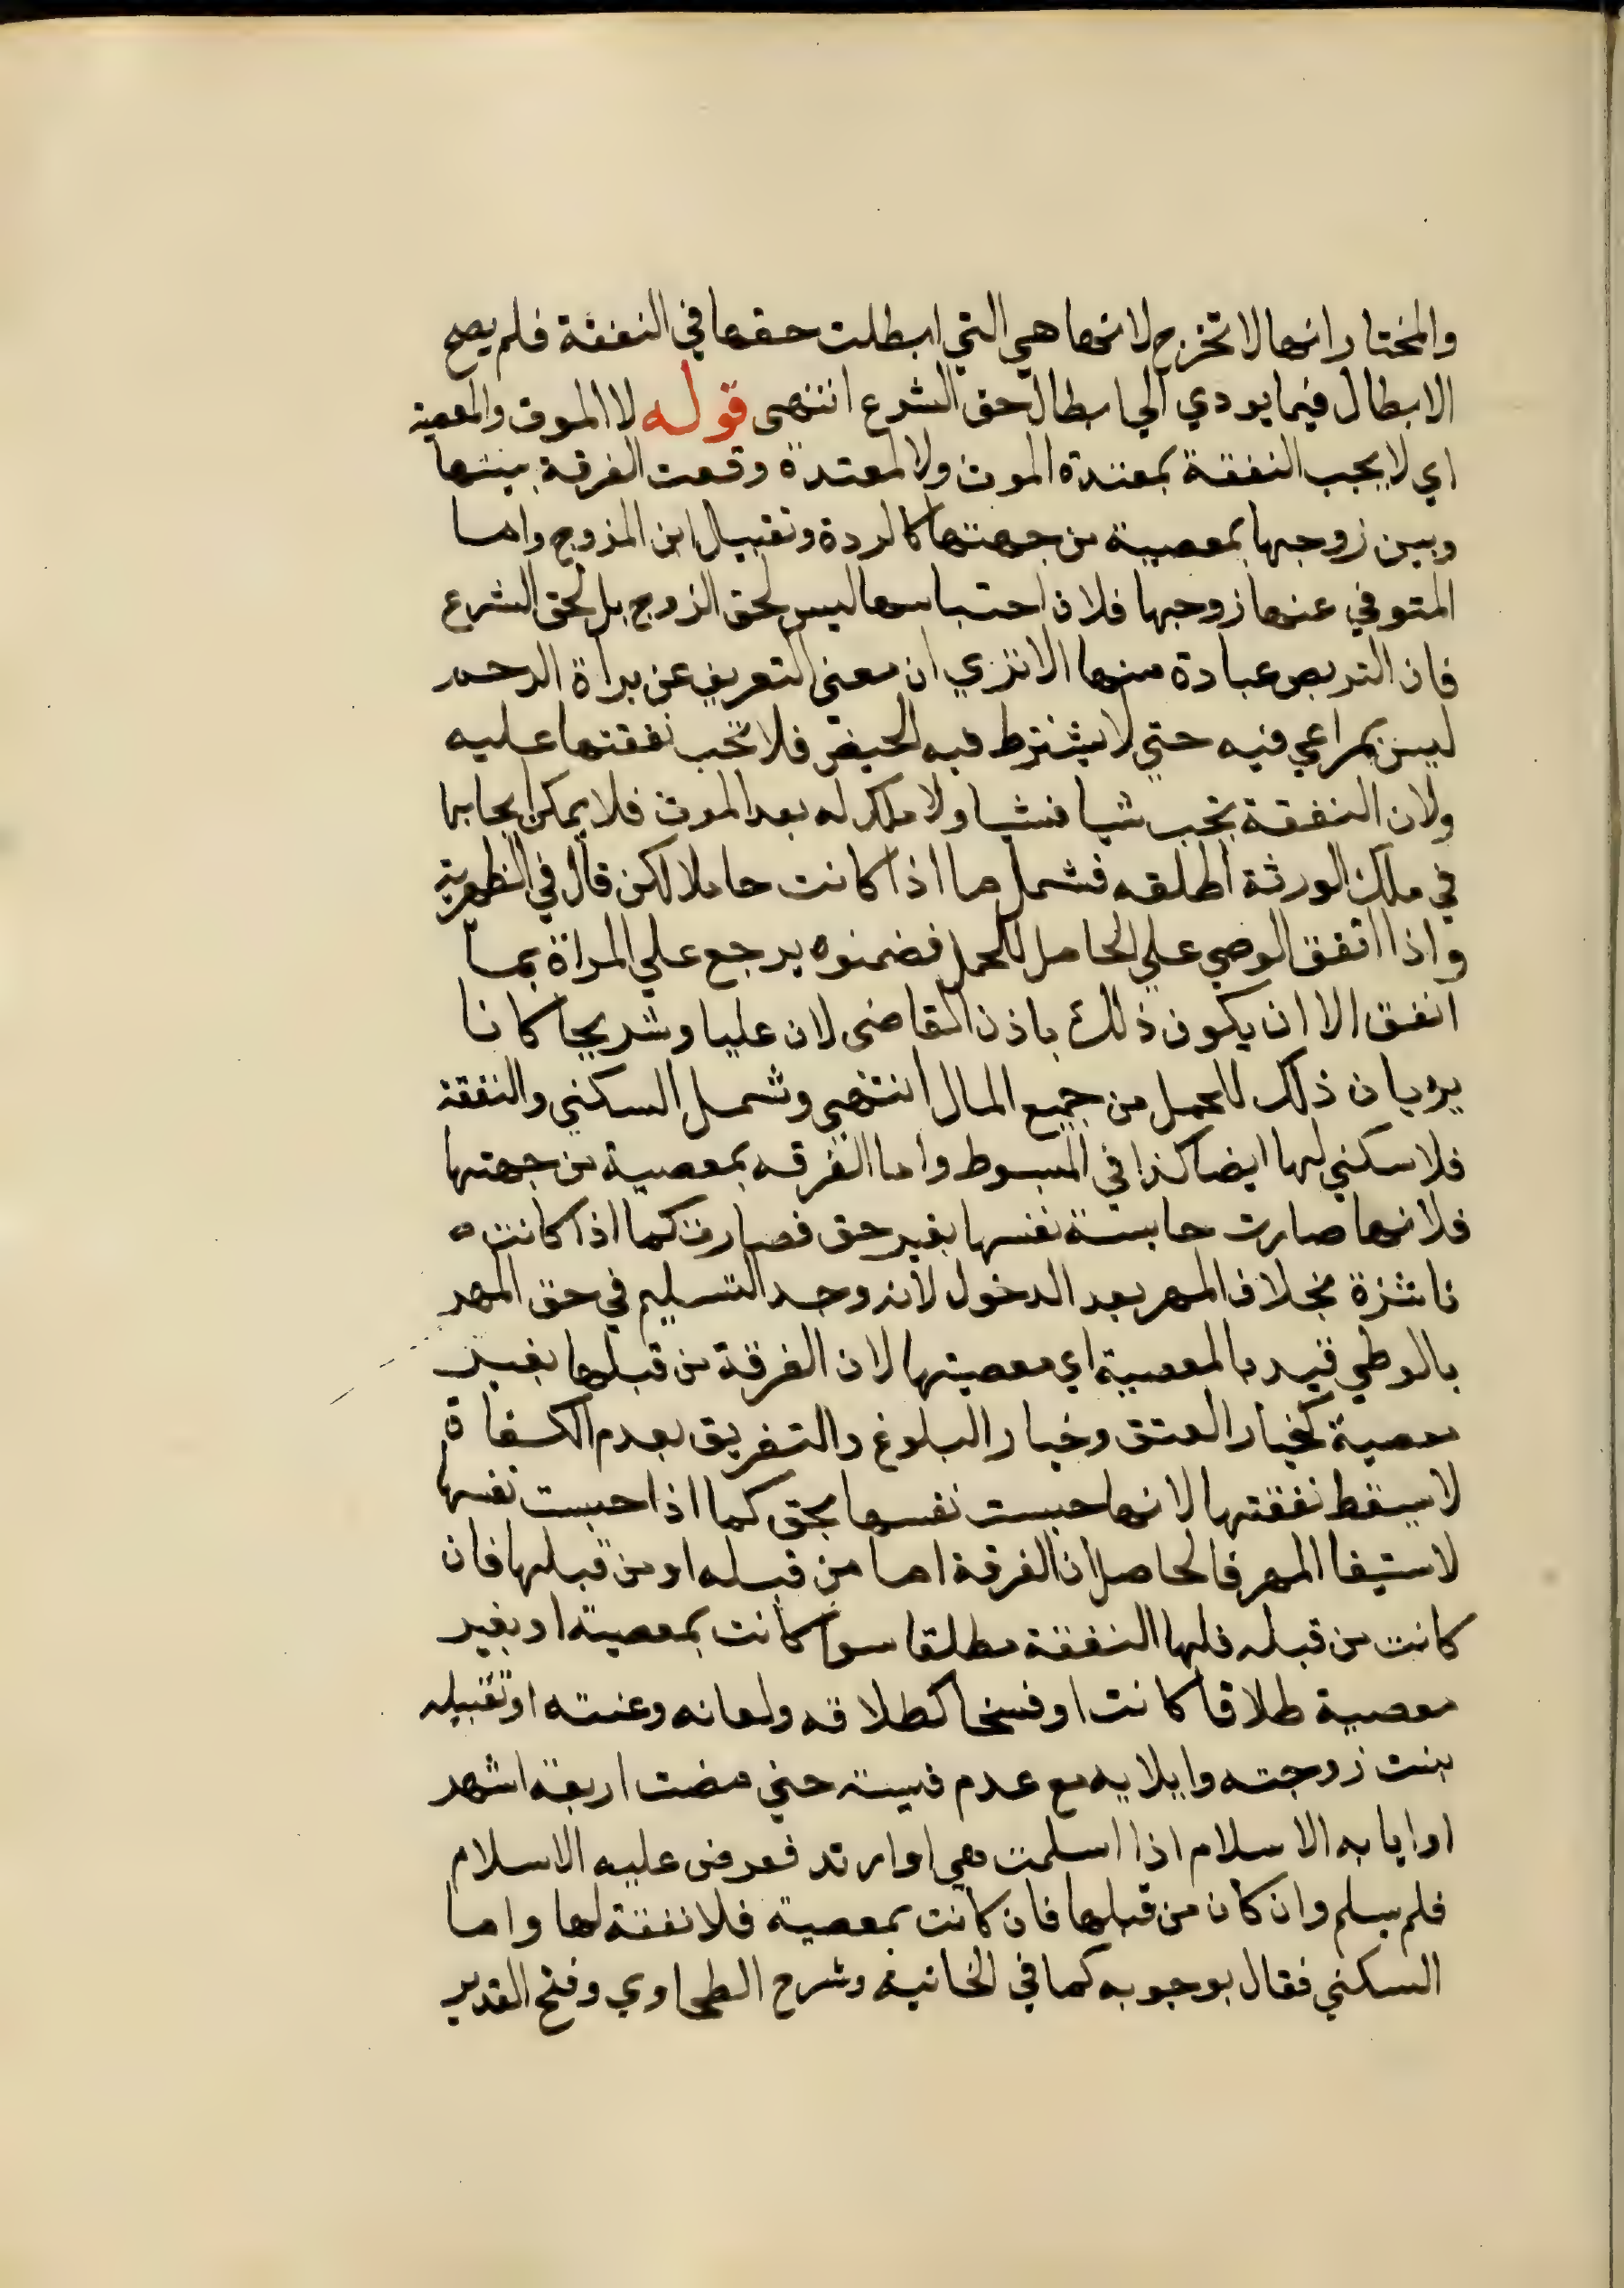 والمختار انها لا تخرج لانها هي التي ابطلت حقها في النفقة فلم يصح
الابطال فيما يودي الي ابطال حق الشرع انتهى قوله لا الموت والمعصية
اي لا يجب النفقة بمعتدة الموت ولا لمعتدة وقعت الفرقة بينها
وبين زوجها بمعصية من جهتها كالردة وتقبيل ابن المزوج واما
المتوفي عنها زوجها فلان احتباسها ليس لحق الزوج بل لحق الشرع
فان التربص عبادة منها الا تري ان معني التعريف عن براة الرحم
ليس بمراعي فيه حتي لا يشترط فيه الحيض فلا تجب نفقتها عليه
ولان النفقة تجب شيا فشيا ولا ملك له بعد الموت فلا يمكن ايجابها
في ملك الورثة اطلقه فشمل ما اذا كانت حاملا لكن قال في الظهرية
واذا انفق الوصي علي الحامل للحمل فضمنوه يرجع علي المراة بما
انفق الا ان يكون ذلك باذن القاضى لان عليا وشريحا كانا
يريان ذلك للحمل من جميع المال انتهى وشمل السكني والنفقة
فلا سكني لها ايضا كذا في المبسوط واما الفرقه بمعصية من جهتها
فلانها صارت حابسة نفسها بغير حق فصارت كما اذا كانت
ناشزة بخلاف المهر بعد الدخول لانه وجد التسليم في حق المهر
بالوطي قيد بالمعصية اي معصيتها لان الفرقة من قبلها بغير
معصية كخيار العتق وخيار البلوغ والتفريق بعدم الكفاة
لا يسقط نفقتها لانها حبست نفسها بحق كما اذا حبست نفسها
لاستيفا المهر فالحاصل ان الفرقة اما من قبله او من قبلها فان
كانت من قبله فلها النفقة مطلقا سوا كانت بمعصية او بغير
معصية طلاقا كانت او فسخا كطلاقه ولعانه وعنته او تقبيله
بنت زوجته وايلايه مع عدم فييه حتي مضت اربعة اشهر
او اياه به الاسلام اذا اسلمت هي او ارتد فعرض عليه الاسلام
فلم يسلم وان كان من قبلها فان كانت بمعصية فلا نفقة لها واما
السكني فقال بوجوبه كما في الخانية وشرح الطحاوي وفتح القدير